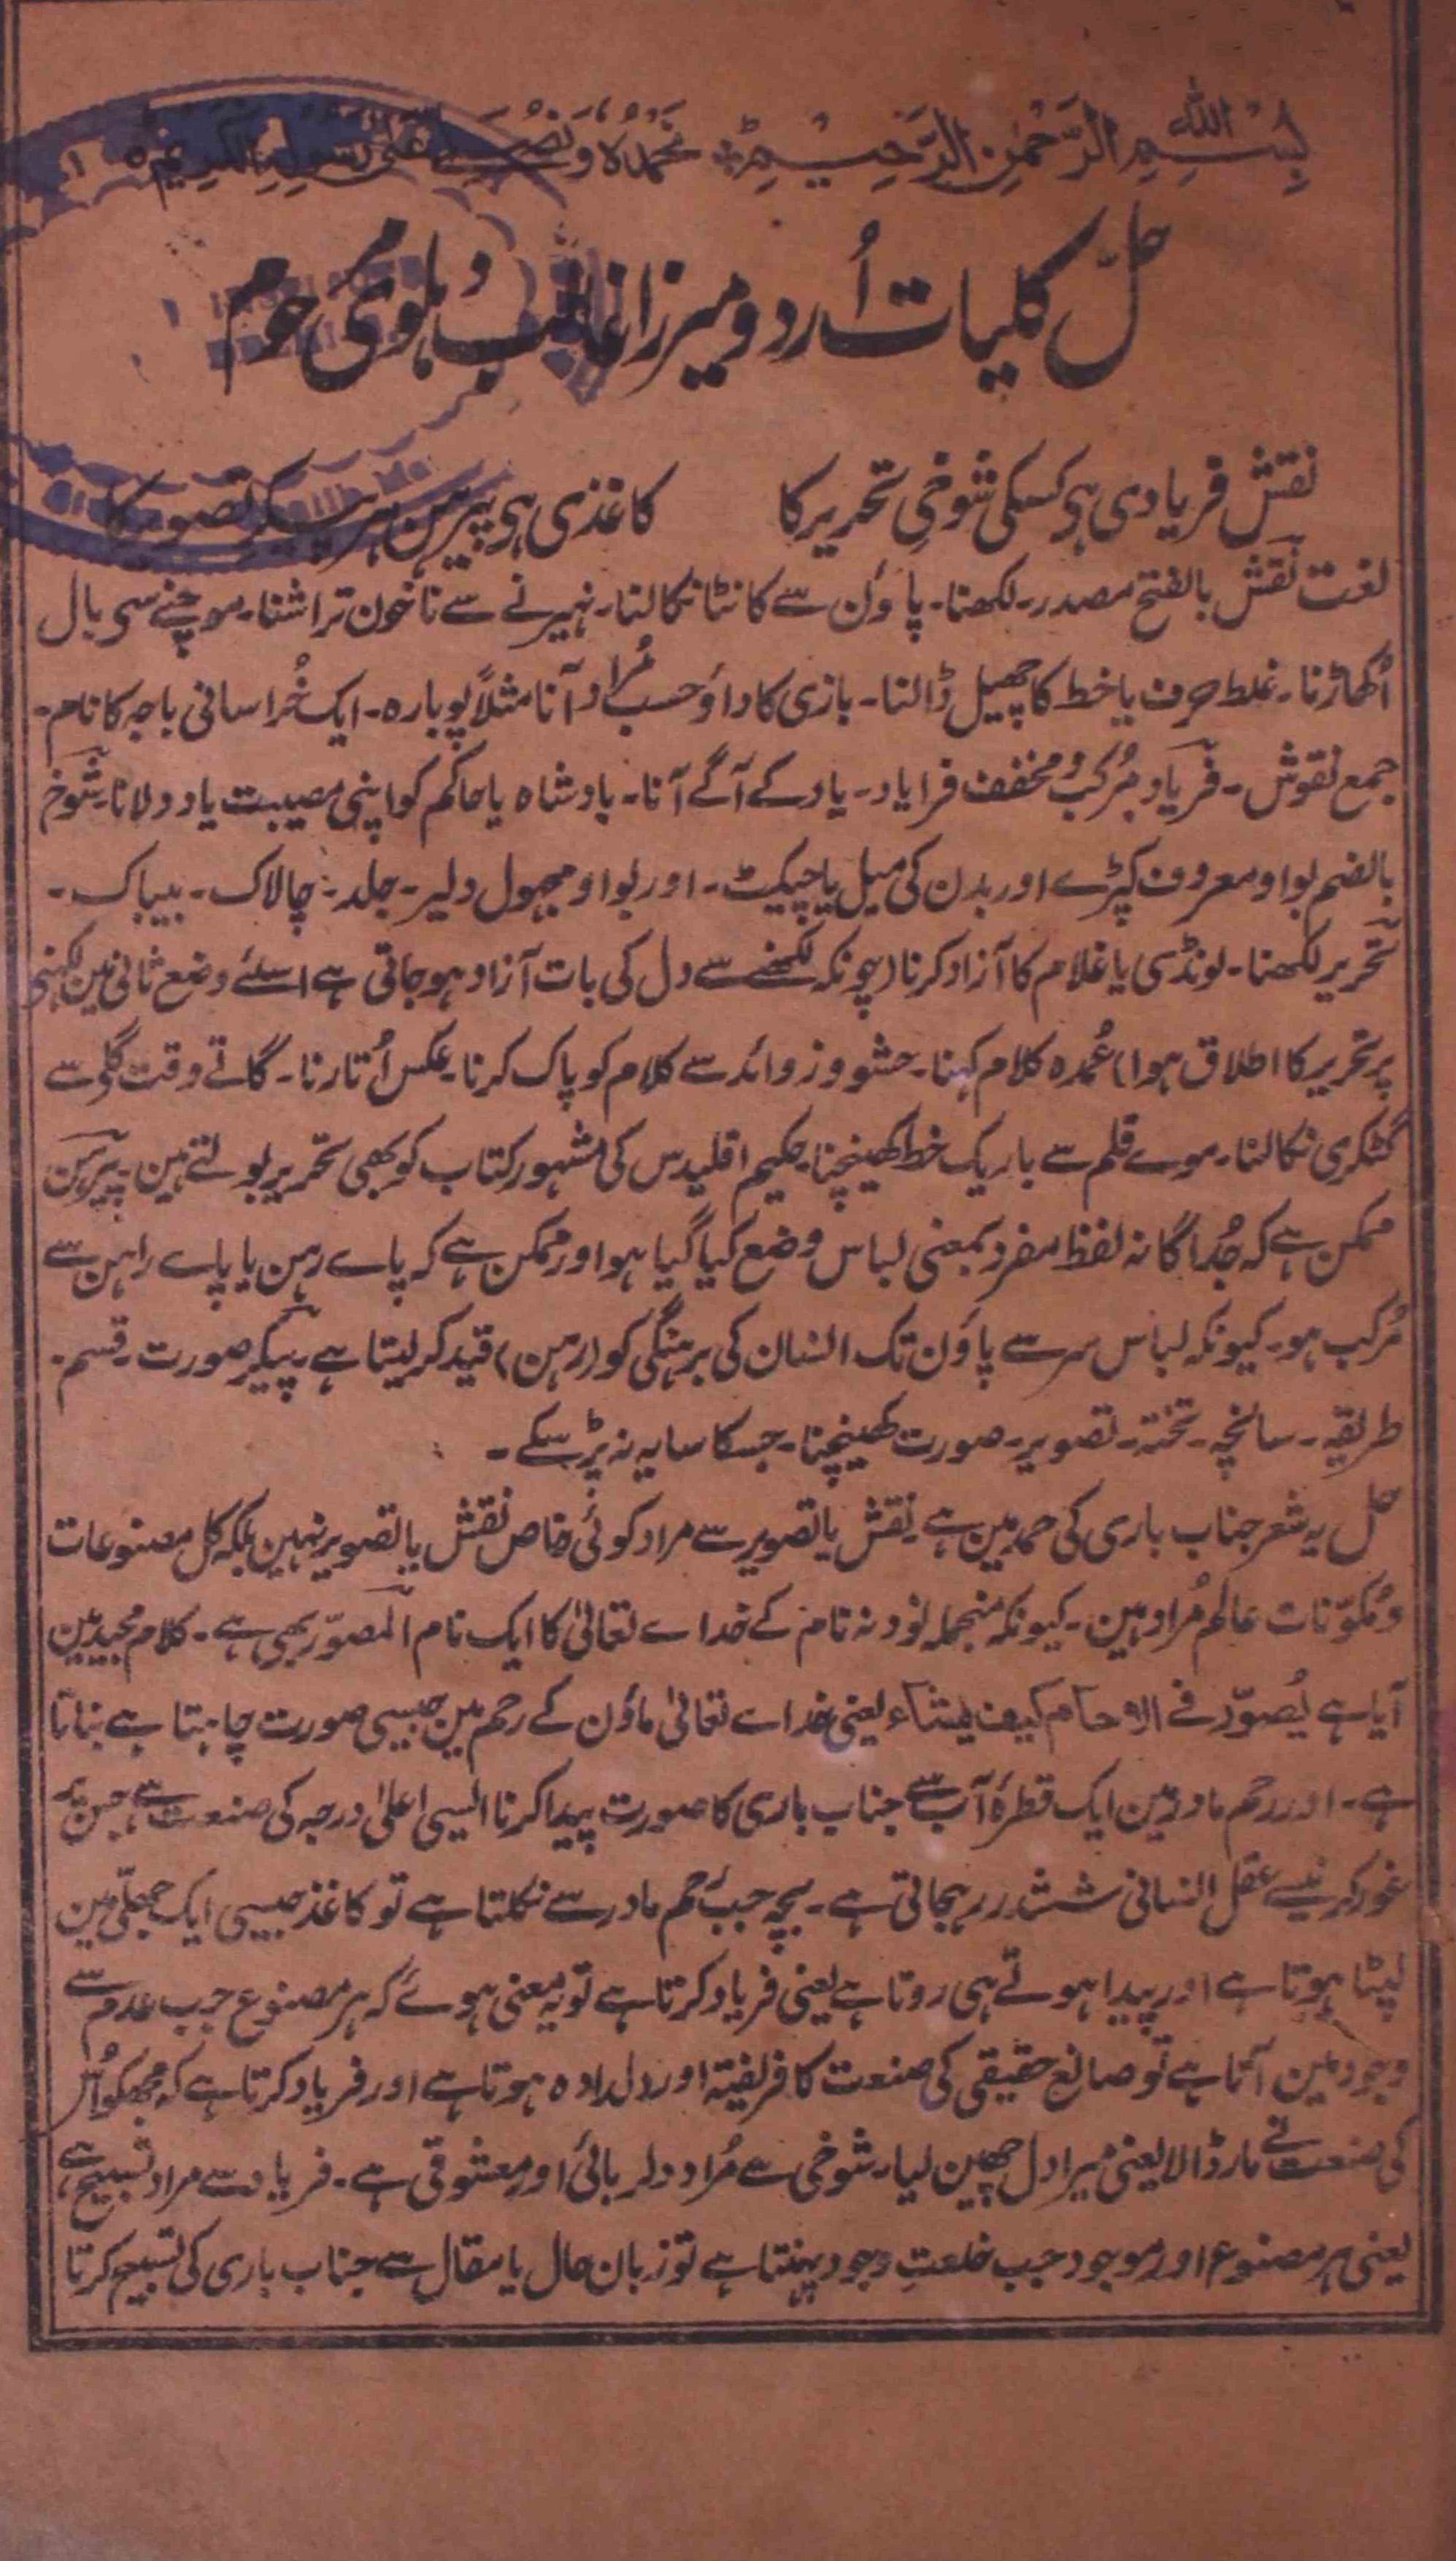 بِسْمِ اللّٰهِ الرَّحْمٰنِ الرَّحِيْمِ نَحْمَدُهٗ وَنُصَلِّے عَلٰى رَسُوْلِهِ الْكَرِيْمِ
حلّ کلیات اُردو میرزا غالب دہلوی مرحوم
نقش فریادی ہی کسکی شوخیِ تحریر کا کاغذی ہی پیرہن ہر پیکرِ تصویر کا
لغت نقش بالفتح مصدر۔ لکھنا۔ پاؤن سے کانٹا نکالنا۔ نہیرنے سے ناخون تراشنا۔ موچنے سی بال
اُکھاڑنا۔ غلط حرف یا خط کا چھیل ڈالنا۔ بازی کا داؤ حسب مُراد آنا مثلاً پوبارہ۔ ایک خُراسانی باجہ کا نام۔
جمع نقوش۔ فریاد مُرکب و مخفف فرا یاد۔ یاد کے آگے آنا۔ بادشاہ یا حاکم کو اپنی مصیبت یاد دلانا۔ شوخ
بالضم بواو معروف کپڑے اور بدن کی میل یا چپکیٹ۔ اور بواو مجہول دلیر۔ جلد۔ چالاک۔ بیباک۔
تحریر لکھنا۔ لونڈی یا غلام کا آزاد کرنا (چونکہ لکھنے سے دل کی بات آزاد ہوجاتی ہے اسلئے وضع ثانی مین لکھنی
پر تحریر کا اطلاق ہوا) عُمدہ کلام کہنا۔ حشو و زوائد سے کلام کو پاک کرنا۔ عکس اُتارنا۔ گاتے وقت گلے سے
گٹکری نکالنا۔ موے قلم سے باریک خط کھینچنا۔ حکیم اقلیدس کی مشہور کتاب کو بھی تحریر بولتے ہین۔ پیرہن
ممکن ہے کہ جُداگانہ لفظ مفرد بمعنی لباس وضع کیا گیا ہو اور ممکن ہے کہ پاے رہن یا پاے راہن سے
مُرکب ہو۔ کیونکہ لباس سر سے پاؤن تک انسان کی برہنگی کو (رہن) قید کر لیتا ہے۔ پیکر صورت۔ قسم۔
طریقہ۔ سانچہ۔ تختہ۔ تصویر۔ صورت کھینچنا۔ جسکا سایہ نہ پڑ سکے۔
حل یہ شعر جناب باری کی حمد مین ہے۔ نقش یا تصویر سے مراد کوئی خاص نقش یا تصویر نہین بلکہ کل مصنوعات
و مُکوّنات عالم مُراد ہین۔ کیونکہ منجملہ نود نہ نام کے خداے تعالیٰ کا ایک نام المصوّر بھی ہے۔ کلام مجید مین
آیا ہے یُصوّر فے الارحام کیف یشاء یعنی خداے تعالیٰ ماؤن کے رحم مین جیسی صورت چاہتا ہے بناتا
ہے۔ اور رحم مادر مین ایک قطرۂ آب سے جناب باری کا صورت پیدا کرنا ایسی اعلیٰ درجہ کی صنعت ہے جس پر
غور کرنیسے عقل انسانی ششدر رہجاتی ہے۔ بچہ جب رحم مادر سے نکلتا ہے تو کاغذ جیسی ایک جھلّی مین
لپٹا ہوتا ہے اور پیدا ہوتے ہی روتا ہے یعنی فریاد کرتا ہے تو یہ معنی ہوئے کہ ہر مصنوع جب عدم سے
وجود مین آتا ہے تو صانع حقیقی کی صنعت کا فریفتہ اور دلدادہ ہوتا ہے اور فریاد کرتا ہے کہ مجھکو اُس
کی صنعت نے مار ڈالا یعنی میرا دل چھین لیا۔ شوخی سے مُراد دلربائی اور معشوقی ہے۔ فریاد سے مراد تسبیح ہے
یعنی ہر مصنوع اور موجود جب خلعتِ وجود پہنتا ہے تو زبان حال یا مقال سے جناب باری کی تسبیح کرتا